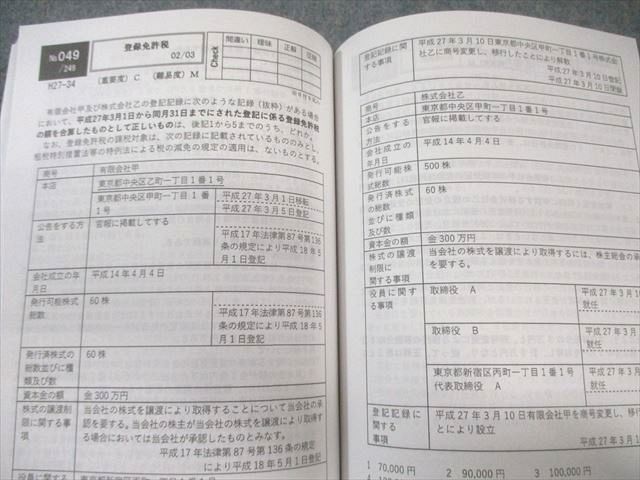 №049
/248
H27-34
登録免許税
02/03
(重要度) C (難易度) M
Check
間違い 曖昧 正解 図解
有限会社甲及び株式会社乙の登記記録に次のような記録（抜粋）がある場合
において、平成27年3月1日から同月31日までにされた登記に係る登録免許税
の額を合算したものとして正しいものは、後記1から5までのうち、どれか。
なお、登録免許税の課税対象は、次の記録に記載されているもののみとし、
租税特別措置法等の特例法による税の減免の規定の適用は、ないものとする。
商号
有限会社甲
本店
東京都中央区乙町一丁目1番1号
東京都中央区甲町一丁目1番
1号
平成27年3月1日移転
平成27年3月5日登記
公告をする方
法
官報に掲載してする
平成17年法律第87号第136
条の規定により平成18年5
月1日登記
会社成立の年
月日
平成14年4月4日
発行可能株式
総数
60株
平成17年法律第87号第136
条の規定により平成18年5
月1日登記
発行済株式の
総数並びに種
類及び数
60株
資本金の額
金300万円
株式の譲渡制
限に関する事
項
当会社の株式を譲渡により取得することについて当会社の承
認を要する。当会社の株主が当会社の株式を譲渡により取得す
る場合においては当会社が承認したものとみなす。
平成17年法律第87号第136条の規定
により平成18年5月1日登記
役員に関する
登記記録に関
する事項
平成27年3月10日東京都中央区甲町一丁目1番1号株式会
社乙に商号変更し、移行したことにより解散
平成27年3月10日登記
平成27年3月10日閉鎖
商号
株式会社乙
本店
東京都中央区甲町一丁目1番1号
公告をする
方法
官報に掲載してする
会社成立の
年月日
平成14年4月4日
発行可能株
式総数
500株
発行済株式
の総数
並びに種類
及び数
60株
資本金の額
金300万円
株式の譲渡
制限に関
する事項
当会社の株式を譲渡により取得するには、株主総会の承
を要する。
役員に関す
る事項
取締役 A
平成27年3月
就任
取締役 B
平成27年3月
就任
東京都新宿区丙町一丁目1番1号
代表取締役 A
平成27年3月
就任
登記記録に
関する
事項
平成27年3月10日有限会社甲を商号変更し、移行
とにより設立
平成27年3月
1 70,000円 2 90,000円 3 100,000円